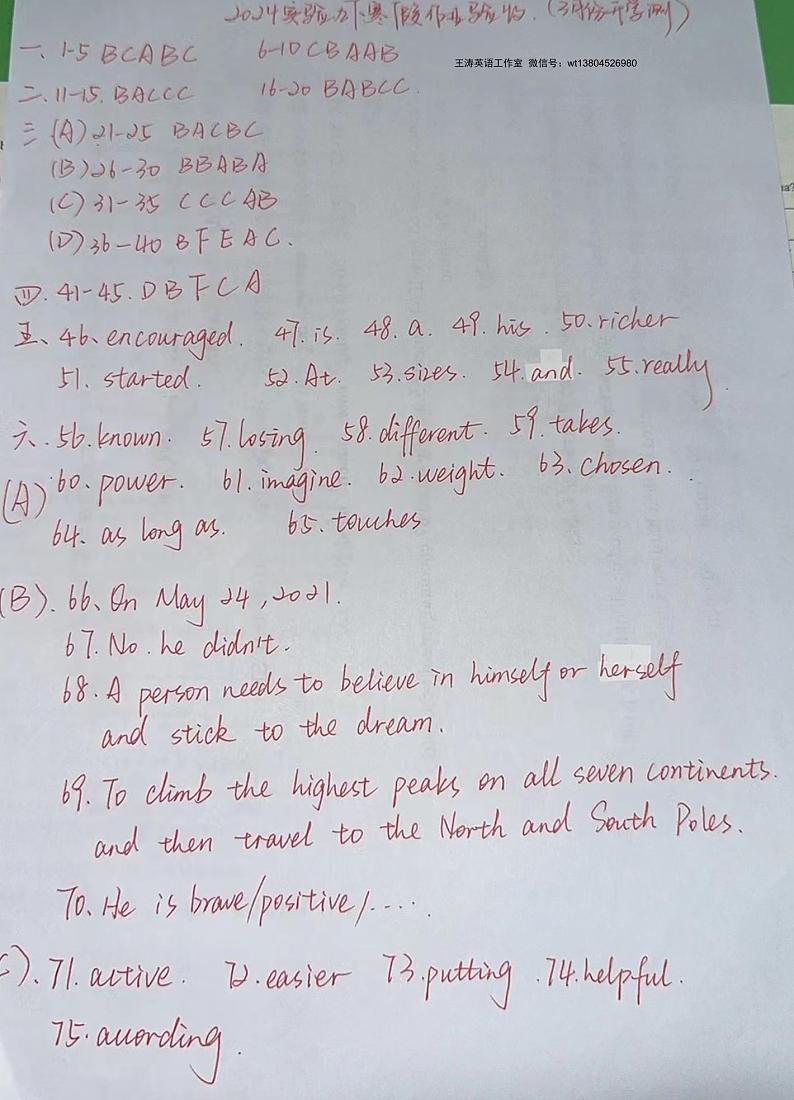 2024实验九下寒假作业验收.(3月份开学测)
一、1-5 BCABC 6-10 CBAAB
王涛英语工作室 微信号：wt13804526980
二、11-15. BACCC 16-20 BABCC.
三 (A) 21-25 BACBC
(B) 26-30 BBABA
(C) 31-35 CCCAB
(D) 36-40 BFEAC.
四. 41-45. DBFCA
五、46、encouraged. 47. is. 48. a. 49. his. 50. richer
51. started. 52. At. 53. sizes. 54. and. 55. really
六. 56. known. 57. losing. 58. different. 59. takes.
(A) 60. power. 61. imagine. 62. weight. 63. chosen.
64. as long as. 65. touches
(B). 66、On May 24, 2021.
67. No. he didn't.
68. A person needs to believe in himself or herself
and stick to the dream.
69. To climb the highest peaks on all seven continents.
and then travel to the North and South Poles.
70. He is brave/positive/.....
). 71. active. 72. easier 73. putting. 74. helpful.
75. according.